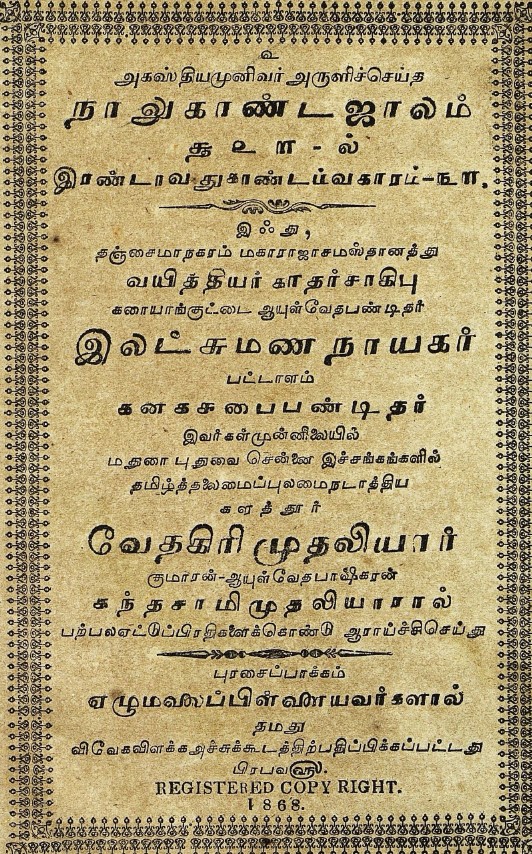 உ
அகஸ்தியமுனிவர் அருளிச்செய்த
நாலுகாண்டஜாலம்
௬ ௱ - ல்
இரண்டாவதுகாண்டம்வகாரம்-௩௱.
இஃது,
தஞ்சைமாநகரம் மகாராஜாசமஸ்தானத்து
வயித்தியர் காதர்சாகிபு
கரையாங்குட்டை ஆயுள்வேதபண்டிதர்
இலட்சுமண நாயகர்
பட்டாளம்
கனகசபைபண்டிதர்
இவர்கள்முன்னிலையில்
மதுரை புதுவை சென்னை இச்சங்கங்களில்
தமிழ்த்தலைமைப்புலமைநடாத்திய
களத்தூர்
வேதகிரி முதலியார்
குமாரன்-ஆயுள்வேதபாஷகரன்
கந்தசாமிமுதலியாரால்
பற்பலஏட்டுப்பிரதிகளைக்கொண்டு ஆராய்ச்சிசெய்து
புரசைப்பாக்கம்
ஏழுமலைப்பிள்ளையவர்களால்
தமது
விவேகவிளக்கஅச்சுக்கூடத்திற்பதிப்பிக்கப்பட்டது
பிரபவ௵.
REGISTERED COPY RIGHT.
1868.